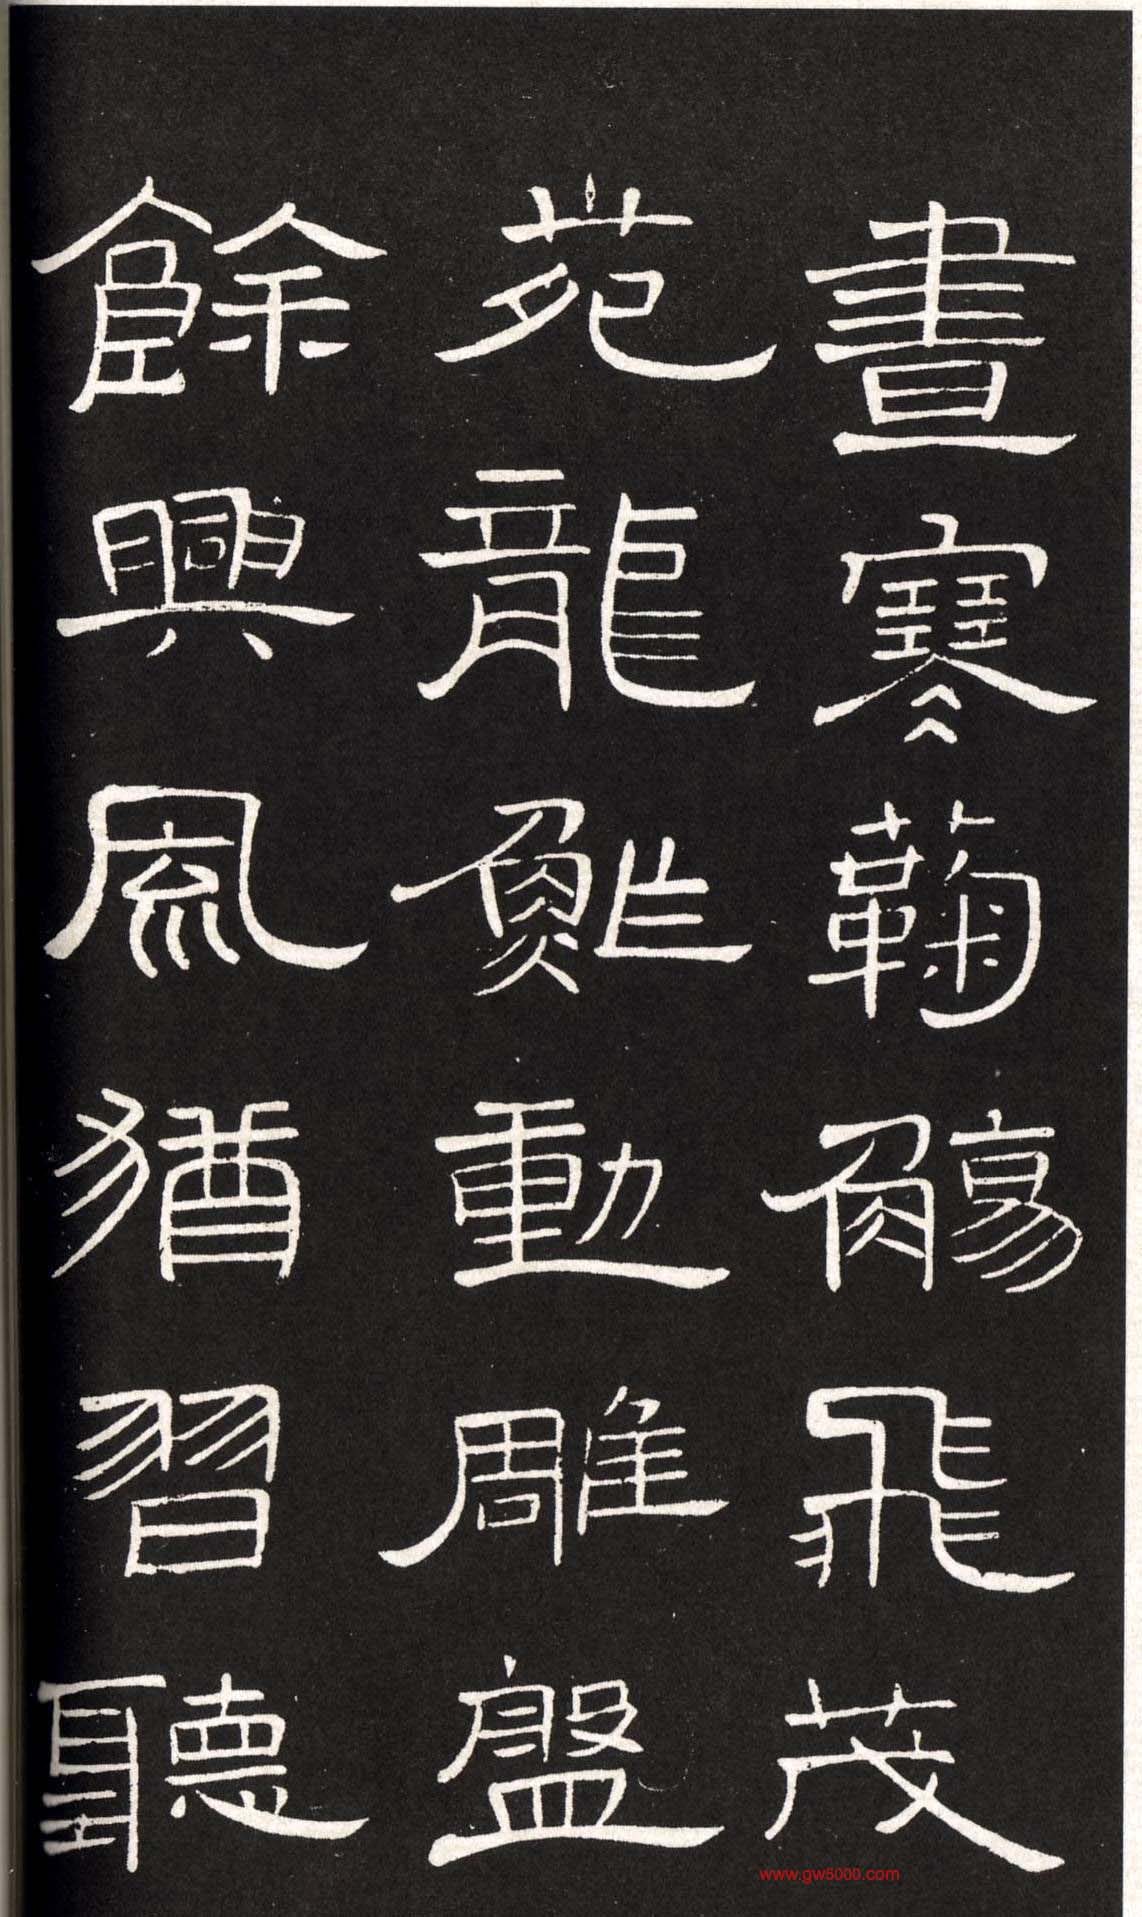 晝寒鞠觴飛茂
苑龍舩動雕盤
餘興風猶習聽
www.gw5000.com